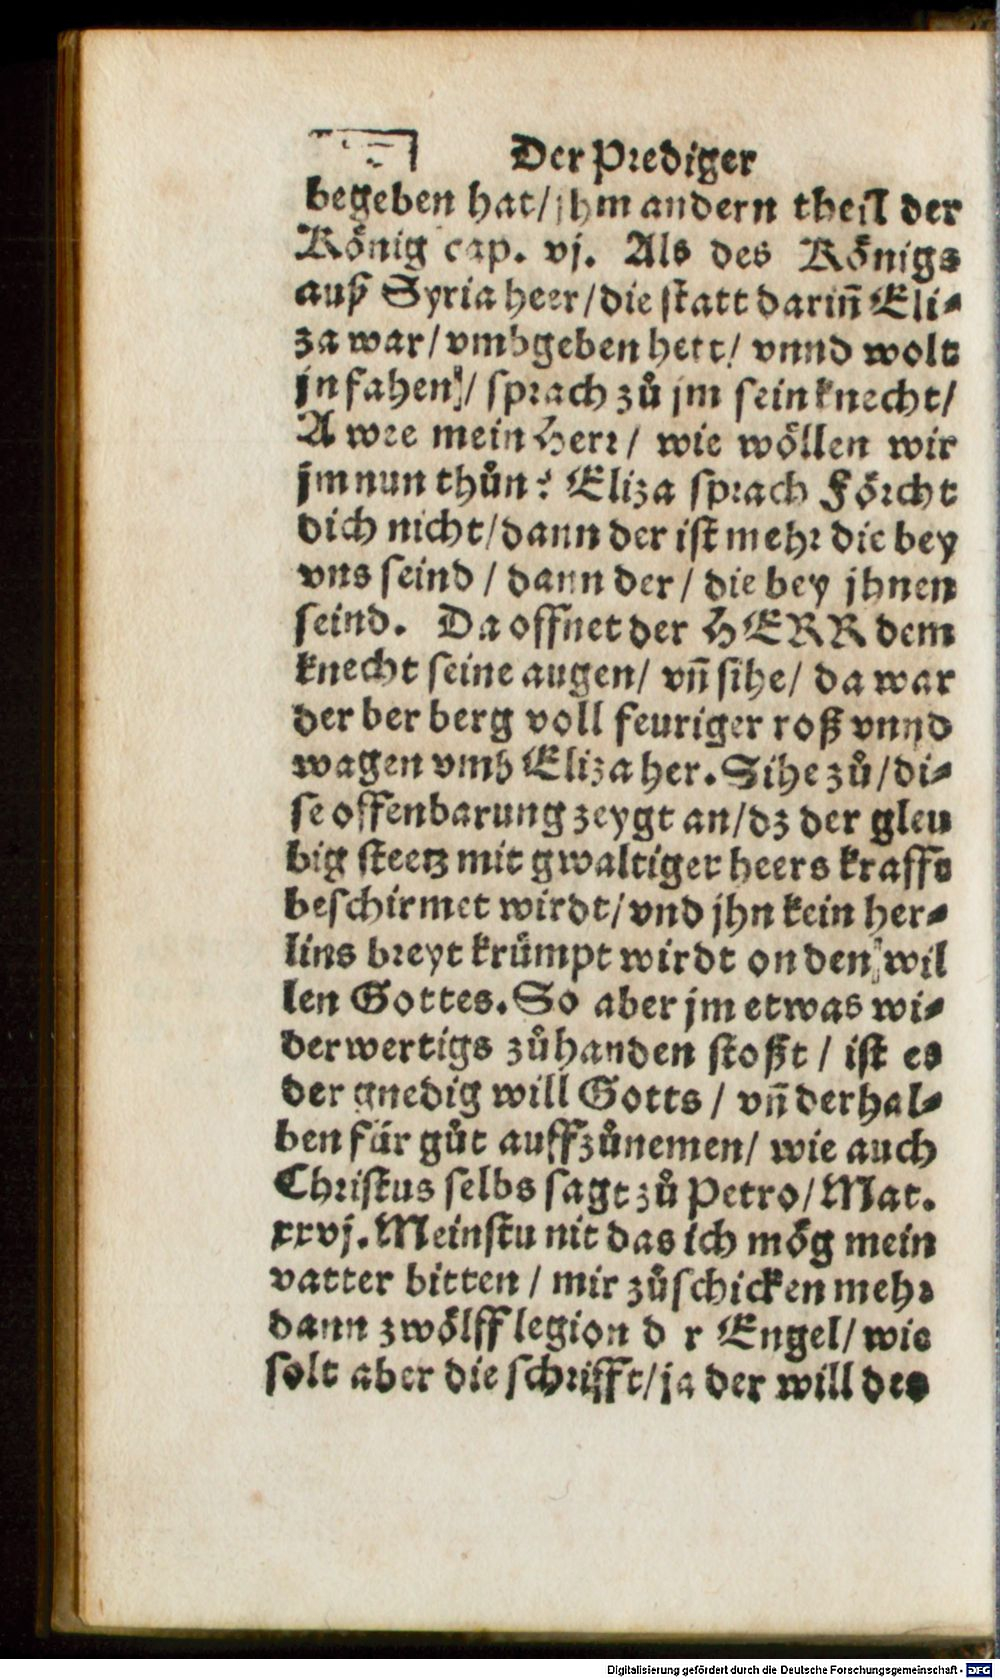 Der Prediger
begeben hat/ jhm andern theil der
Koͤnig cap. vj. Als des Koͤnigs
auß Syria heer/ die statt darinn̄ Eli⸗
za war/ vmbgeben hett/ vnnd wolt
jn fahen/ sprach zuͦ jm sein knecht/
A wee mein Herr/ wie woͤllen wir
jm nun thuͦn? Eliza sprach Foͤrcht
dich nicht/ dann der ist mehr die bey
vns seind / dann der/ die bey jhnen
seind. Da offnet der HERR dem
knecht seine augen/ vn̄ sihe/ da war
der ber berg voll feuriger roß vnnd
wagen vmb Eliza her. Sihe zuͦ/ di⸗
se offenbarung zeygt an/ dz der gleu
big steetz mit gwaltiger heers krafft
beschirmet wirdt/ vnd jhn kein her⸗
lins breyt kruͤmpt wirdt on den wil
len Gottes. So aber jm etwas wi⸗
derwertigs zuͦhanden stoßt / ist es
der gnedig will Gotts / vn̄ derhal⸗
ben fuͤr guͦt auffzuͦnemen/ wie auch
Christus selbs sagt zuͦ Petro/ Mat.
xxvj. Meinstu nit das ich moͤg mein
vatter bitten / mir zuͦschicken mehr
dann zwoͤlff legion d r Engel/ wie
solt aber die schrifft/ ja der will des
Digitalisierung gefördert durch die Deutsche Forschungsgemeinschaft - DFG